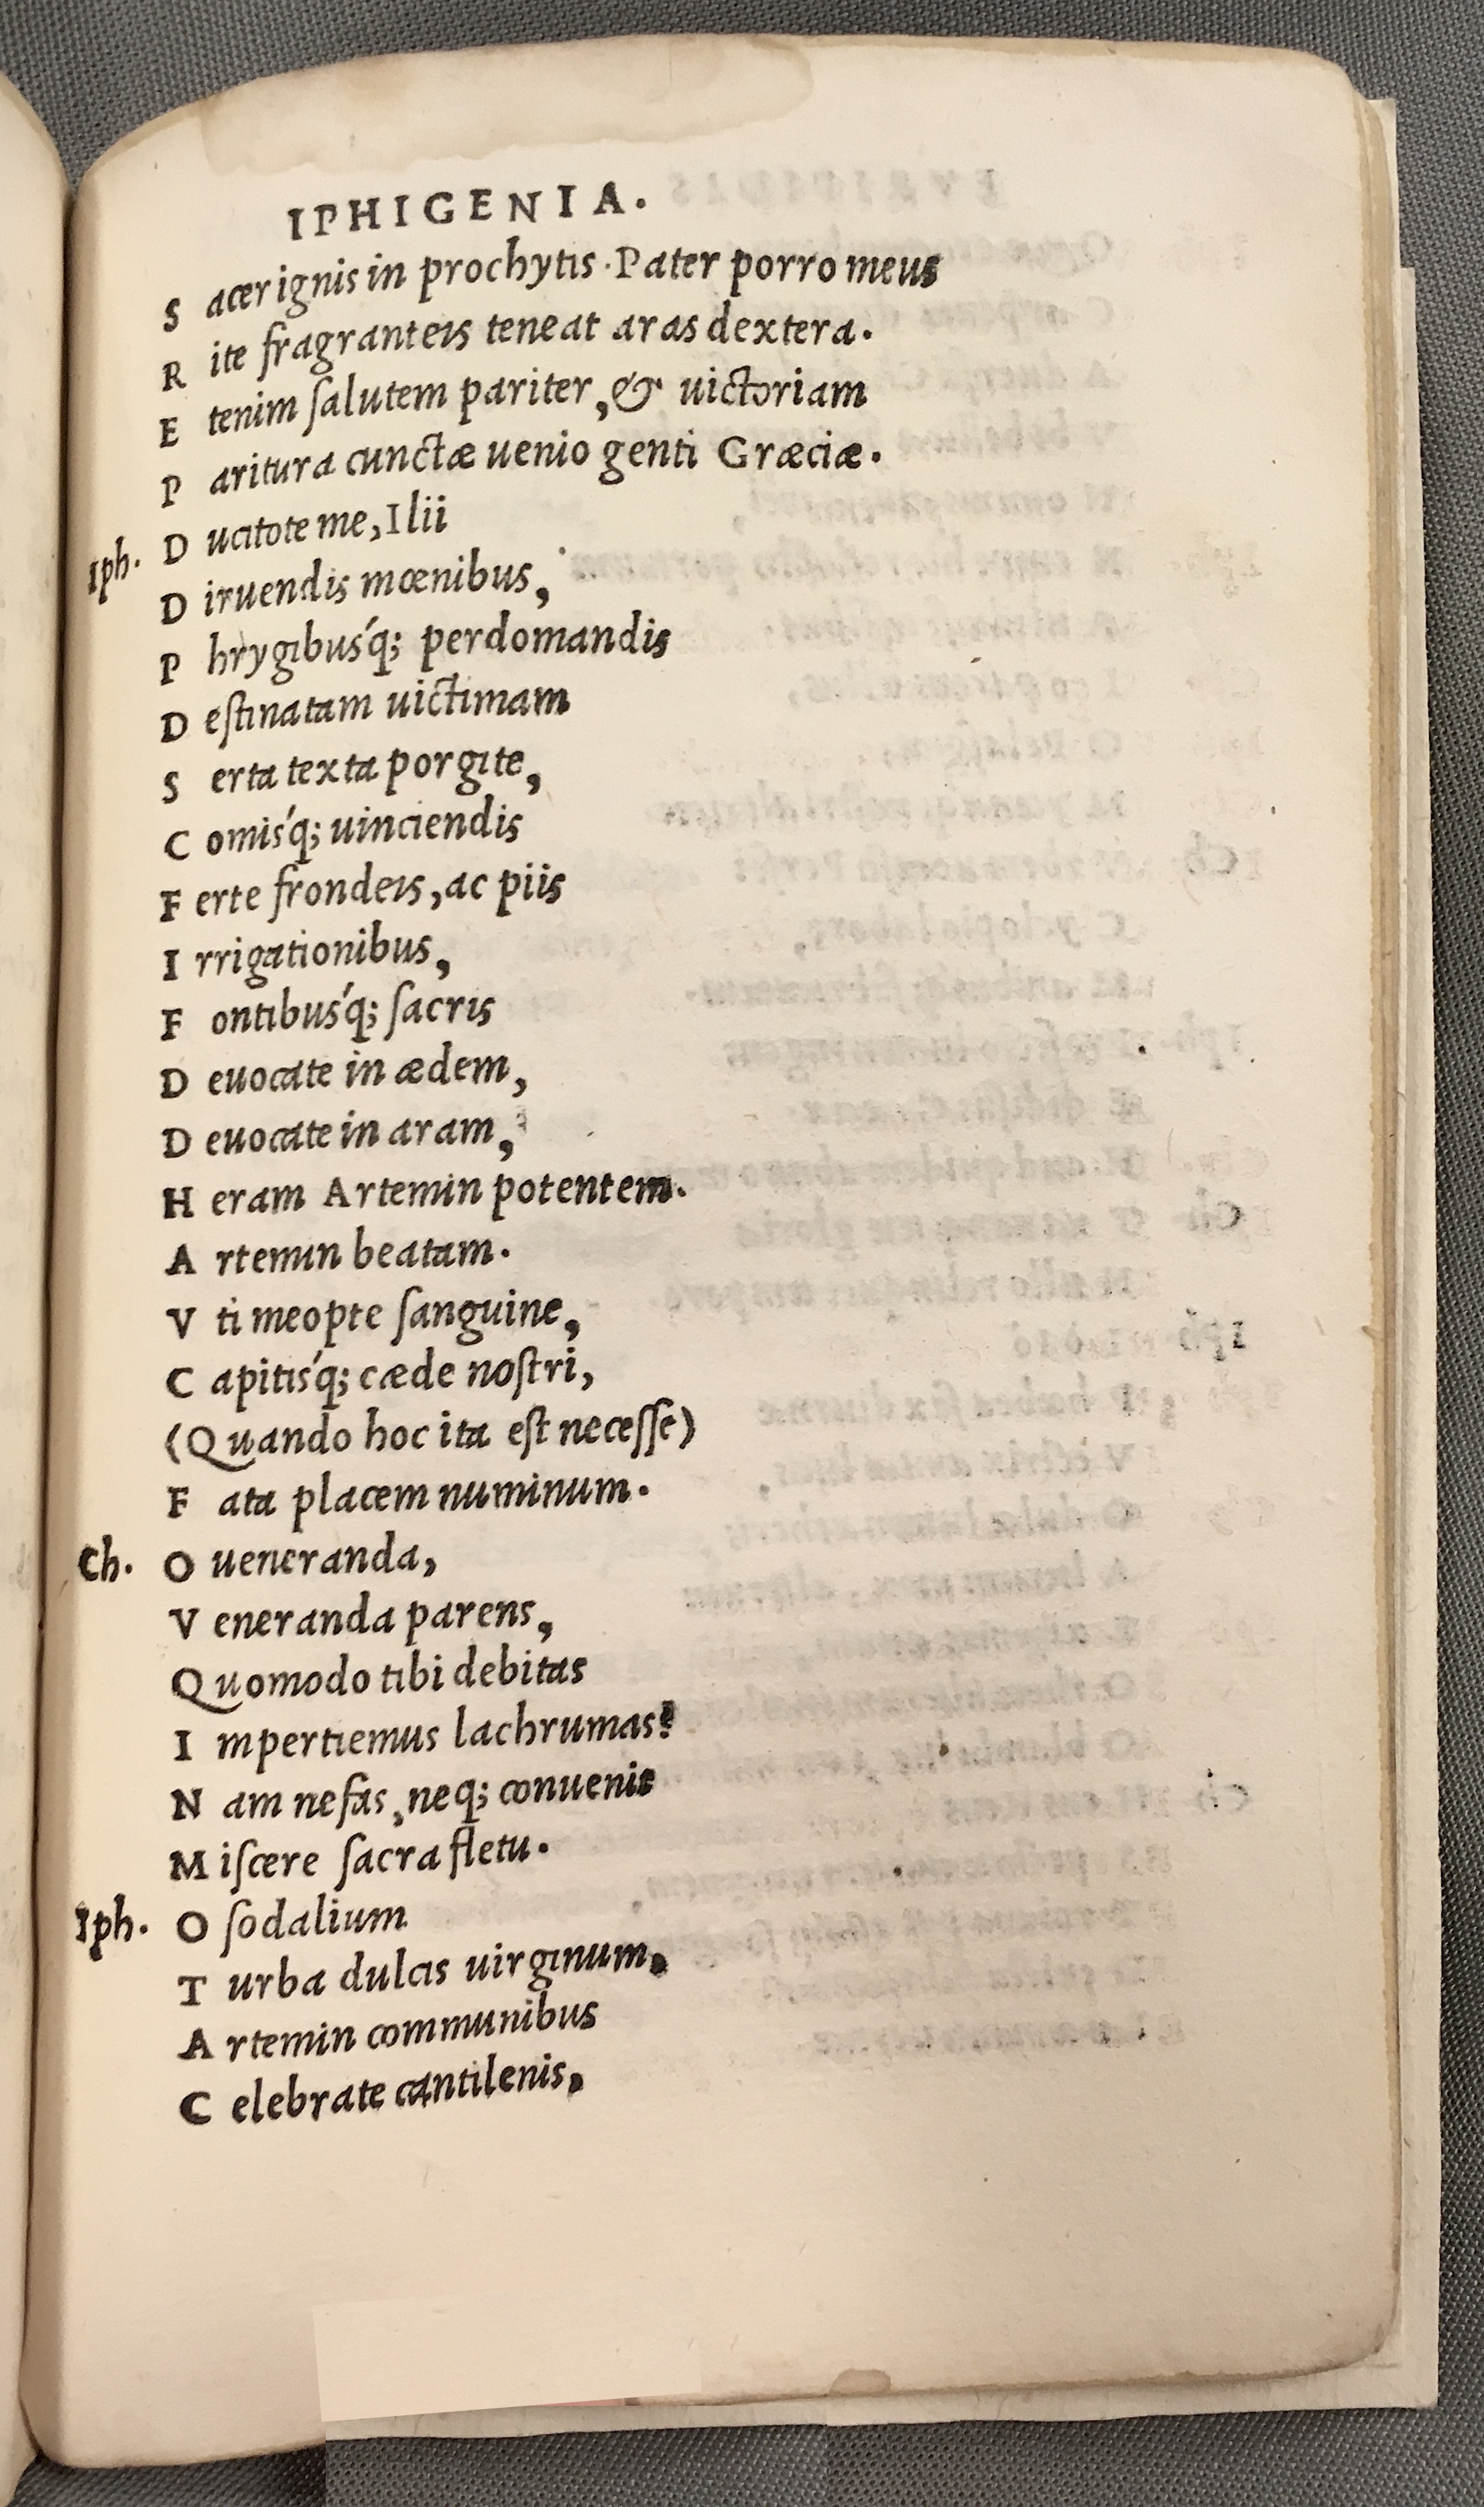 IPHIGENIA.
S acer ignis in prochytis. Pater porro meus
R ite fragranteis teneat aras dextera.
E tenim ſalutem pariter, & uictoriam
P aritura cunctæ uenio genti Græciæ.
Iph. D ucitote me, Ilii
D iruendis mœnibus,
P hrygibus'q; perdomandis
D eſtinatam uictimam
S erta texta porgite,
C omis'q; uinciendis
F erte frondeis, ac piis
I rrigationibus,
F ontibus'q; ſacris
D euocate in ædem,
D euocate in aram,
H eram Artemin potentem.
A rtemin beatam.
V ti meopte ſanguine,
C apitis'q; cæde noſtri,
(Quando hoc ita eſt neceſſe)
F ata placem numinum.
Ch. O ueneranda,
V eneranda parens,
Quomodo tibi debitas
I mpertiemus lachrumas?
N am nefas, neq; conuenit
M iſcere ſacra fletu.
Iph. O ſodalium
T urba dulcis uirginum,
A rtemin communibus
C elebrate cantilenis,